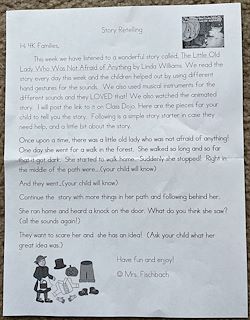 Story Retelling
Hi 4K Families,
This week we have listened to a wonderful story called, The Little Old
Lady Who Was Not Afraid of Anything by Linda Williams. We read the
story every day this week and the children helped out by using different
hand gestures for the sounds. We also used musical instruments for the
different sounds and they LOVED that! We also watched the animated
story. I will post the link to it on Class Dojo. Here are the pieces for your
child to tell you the story. Following is a simple story starter in case they
need help, and a little bit about the story.
Once upon a time, there was a little old lady who was not afraid of anything!
One day she went for a walk in the forest. She walked so long and so far
that it got dark. She started to walk home. Suddenly she stopped! Right in
the middle of the path were...(your child will know)
And they went...(your child will know)
Continue the story with more things in her path and following behind her.
She ran home and heard a knock on the door. What do you think she saw?
(all the sounds again!)
They want to scare her and she has an idea! (Ask your child what her
great idea was.)
Have fun and enjoy!
© Mrs. Fischbach